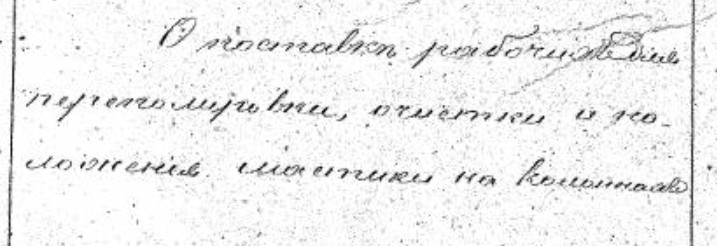 О поставкѣ рабочихъ для
переполировки, очистки и по-
ложения мастики на колоннахъ